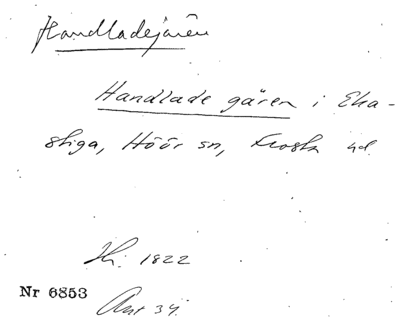 Handladejären
Handlade gären i Eka-
stiga, Höör sn, Frosta hd.
Hs. 1822
Nr 6853
Ant 34.